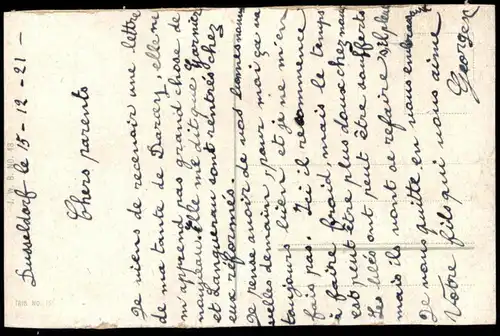 Dusseldorf le 15-12-21-
Chers parents
Je viens de recevoir une lettre
de ma tante de Darcey, elle ne
m'apprend pas grand chose de
nouveau. Elle me dit que Garnier
et Langueron sont rentrés chez
eux réformés.
Je pense avoir de vos bonnes nou
velles demain, pour moi ça va
toujours bien et je ne m'en
fais pas. Ici il recommence
à faire froid, mais le temps
est peut être plus doux chez nous
Les blés ont peut être soufferts
mais ils vont se refaire s'il pleut
Je vous quitte en vous embrassant
Votre fils qui vous aime
Georges
J. W. B. NO.